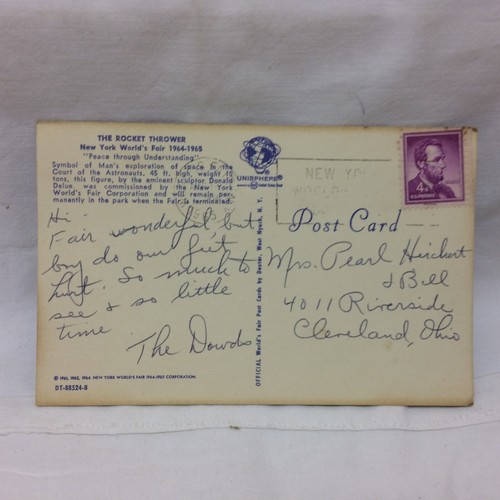 THE ROCKET THROWER
New York World's Fair 1964-1965
"Peace through Understanding"
Symbol of Man's exploration of space in the
Court of the Astronauts, 45 ft. high, weight 15
tons, this figure, by the eminent sculptor Donald
Delue, was commissioned by the New York
World's Fair Corporation and will remain per-
manently in the park when the Fair is terminated.
Hi
Fair wonderful, but
boy do our feet
hurt. So much to
see & so little
time
The Dowds
© 1961, 1962, 1964 NEW YORK WORLD'S FAIR 1964-1965 CORPORATION
DT-88524-B
UNISPHERE®
OFFICIAL World's Fair Post Cards by Dexter, West Nyack, N. Y.
NEW YO
WORLD'S
4¢
U.S. POSTAGE
Post Card
Mrs. Pearl
& Bill
4011 Riverside
Cleveland, Ohio